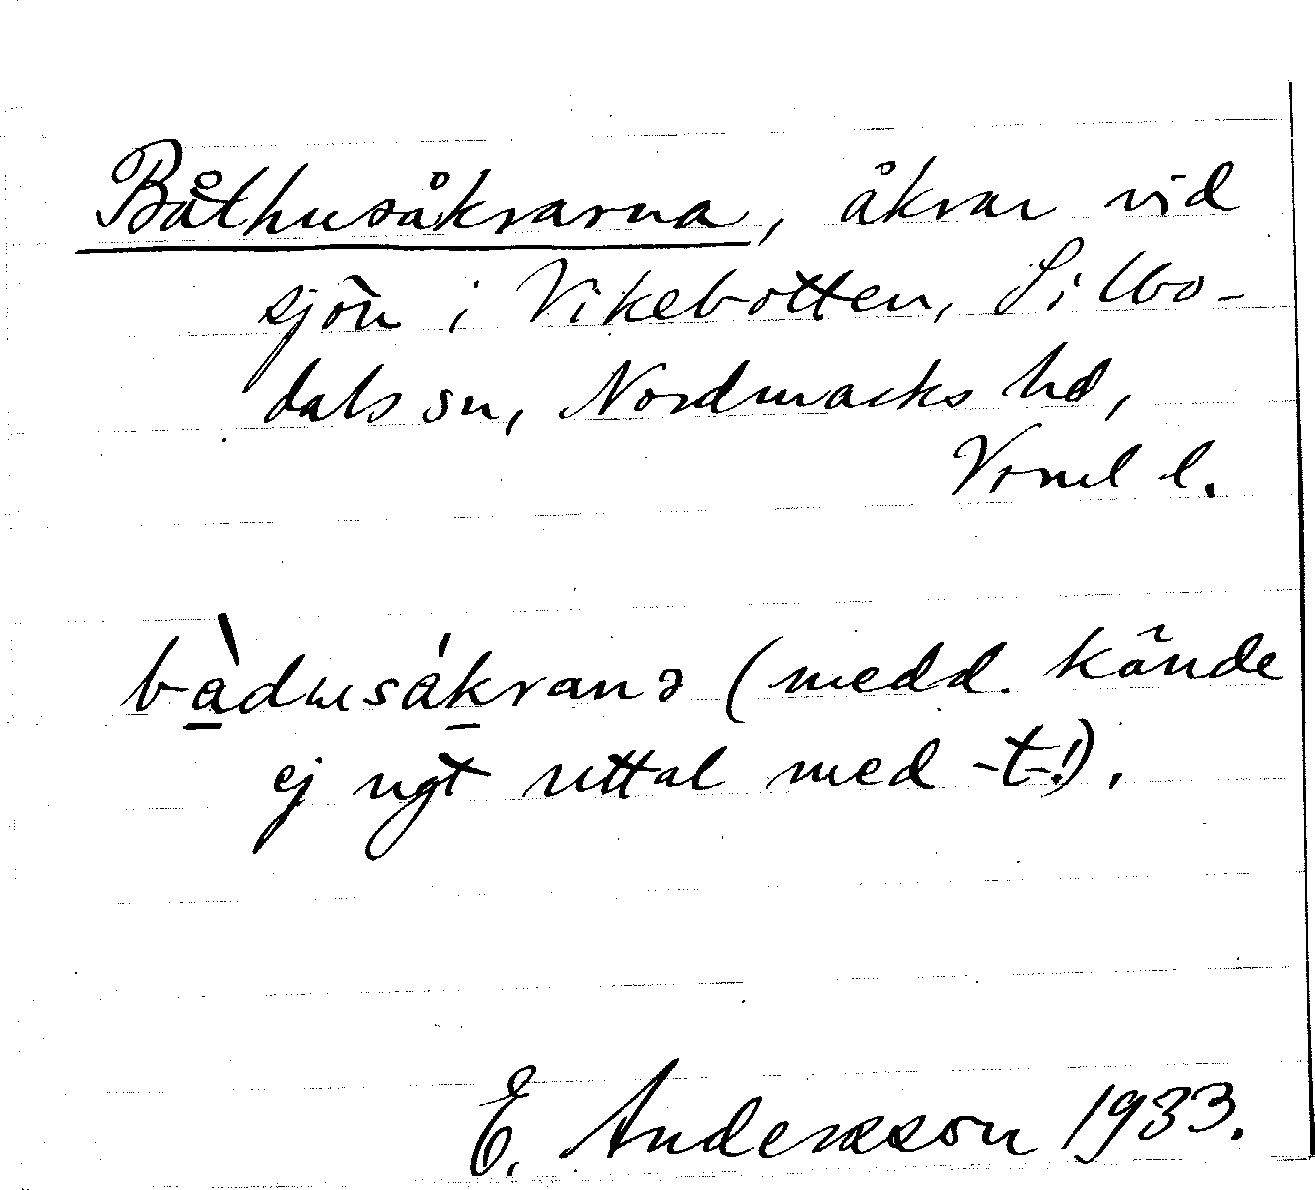 Båthusåkrarna, åkrar vid
sjön i Vikebotten, Silbo-
dals sn, Nordmarks hd,
Vrml l.
bàdusákranə (medd. kände
ej ngt uttal med -t-!).
E. Andersson 1933.